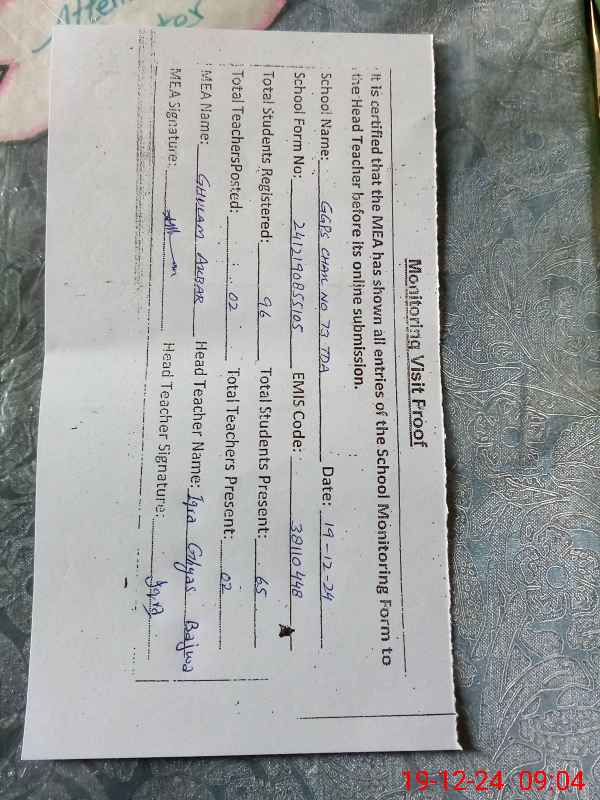 Monitoring Visit Proof
It is certified that the MEA has shown all entries of the School Monitoring Form to
the Head Teacher before its online submission.
School Name: GGPS CHAK NO 73 TDA Date: 19-12-24
School Form No: 2412190855105 EMIS Code: 38110448
Total Students Registered: 96 Total Students Present: 65
Total TeachersPosted: 02 Total Teachers Present: 02
MEA Name: GHULAM AKBAR Head Teacher Name: Iqra Ghyas Bajwa
MEA Signature: Head Teacher Signature:
19-12-24 09:04